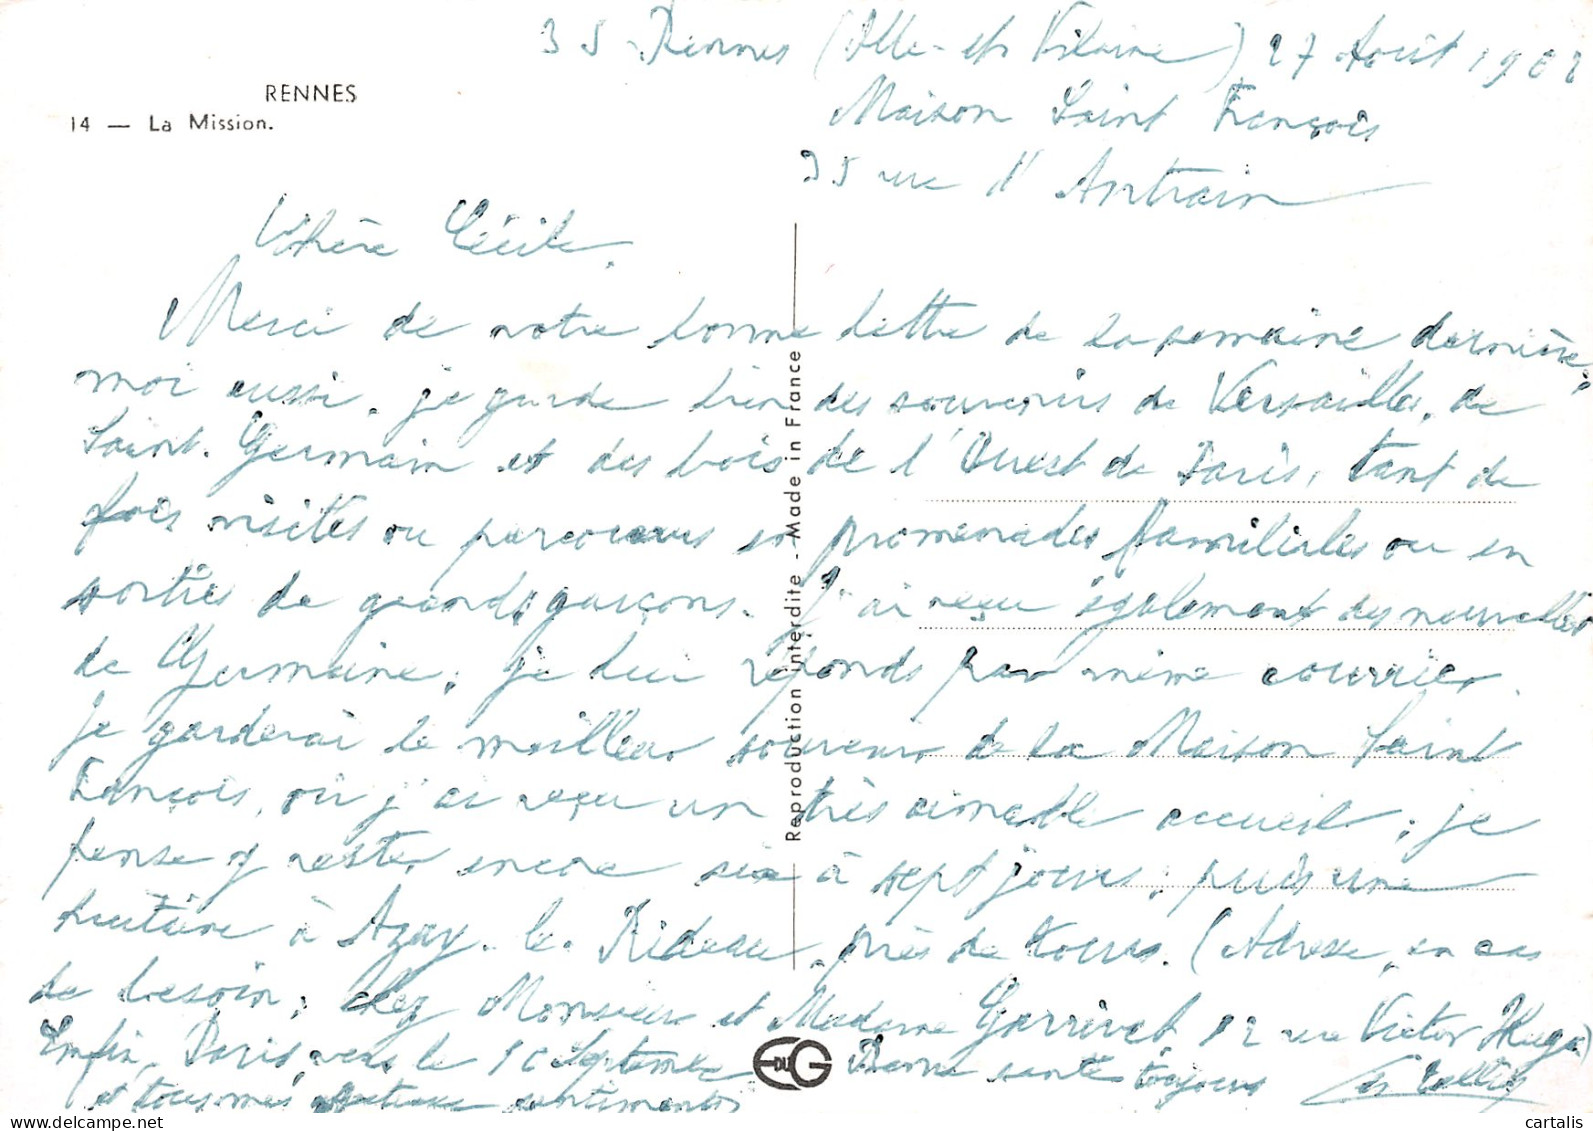 RENNES
14 — La Mission.
35 - Rennes (Ille-et Vilaine) 27 Août
Maison Saint François
35 rue d'Antrain
Chère Cécile,
Merci de votre bonne lettre de la semaine dernière;
moi aussi, je garde bien des souvenirs de Versailles, de
Saint-Germain et des bois de l'Ouest de Paris, tant de
fois visités ou parcourus en promenades familiales ou en
sorties de grands garçons. J'ai reçu également des nouvelles
de Germaine; je lui réponds par même courrier.
Je garderai le meilleur souvenir de la Maison Saint
François, où j'ai reçu un très aimable accueil; je
pense y rester encore six à sept jours; puis une
huitaine à Azay-le-Rideau, près de Tours. (Adresse, en cas
de besoin; chez Monsieur et Madame 12 rue Victor Hugo)
Enfin, Paris, vers le Septembre Bonne santé toujours
et tous mes sentiments
Reproduction interdite - Made in France
EDUG
www.delcampe.net
cartalis